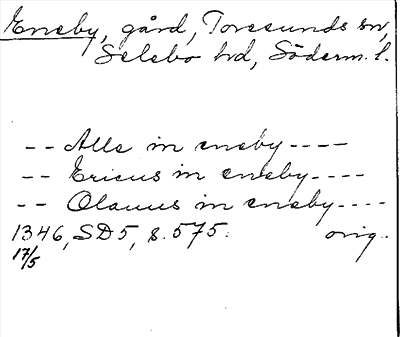 Eneby, gård, Toresunds sn,
Selebo hd, Söderm. l.
-- Alle in eneby ----
-- Ericus in eneby ----
-- Olauus in eneby ----
1346, SD5, s. 575. orig.
17/5